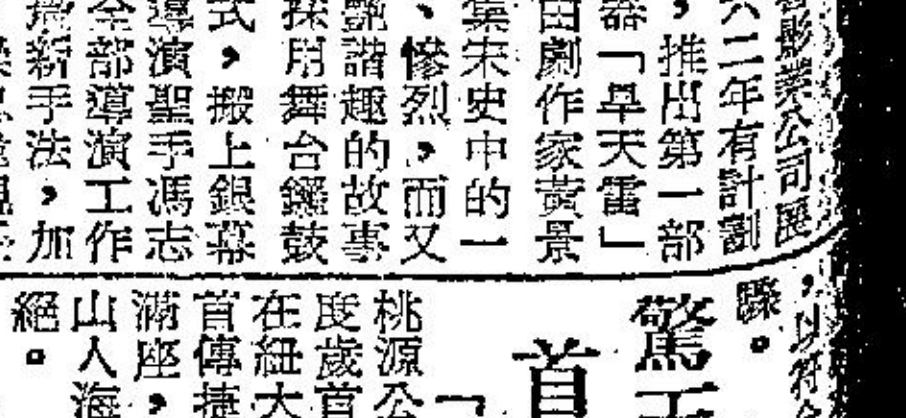 影業公司展
六二年有計劃
，推出第一部
器「旱天雷」
由劇作家黃景
集宋史中的一
、慘烈，而又
艷諧趣的故事
採用舞台鑼鼓
式，搬上銀幕
導演聖手馮志
全部導演工作
新手法，加
，以符合
驟。
驚天
首
「
桃源公
度歲首
在紐大
首傳捷
滿座，
山人海
絕。